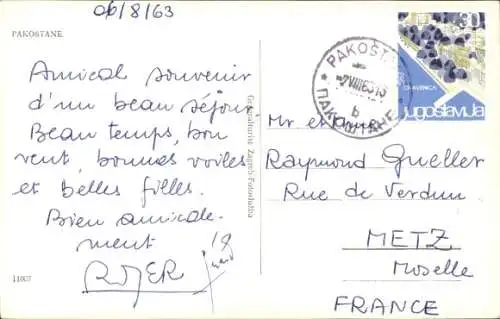 06/8/63
PAKOSTANE
Amical souvenir
d'un beau séjour
Beau temps, bon
vent, bonnes voiles
et belles filles.
Bien amicale-
ment
11607
Grafoslavija Zagreb
PAKOŠTANE
VIII 63 15
b
ПАКОШТАНЕ
30
CRIKVENICA
Jugoslavija
Mr et Mme
Raymond Gueller
Rue de Verdun
METZ
Moselle
FRANCE